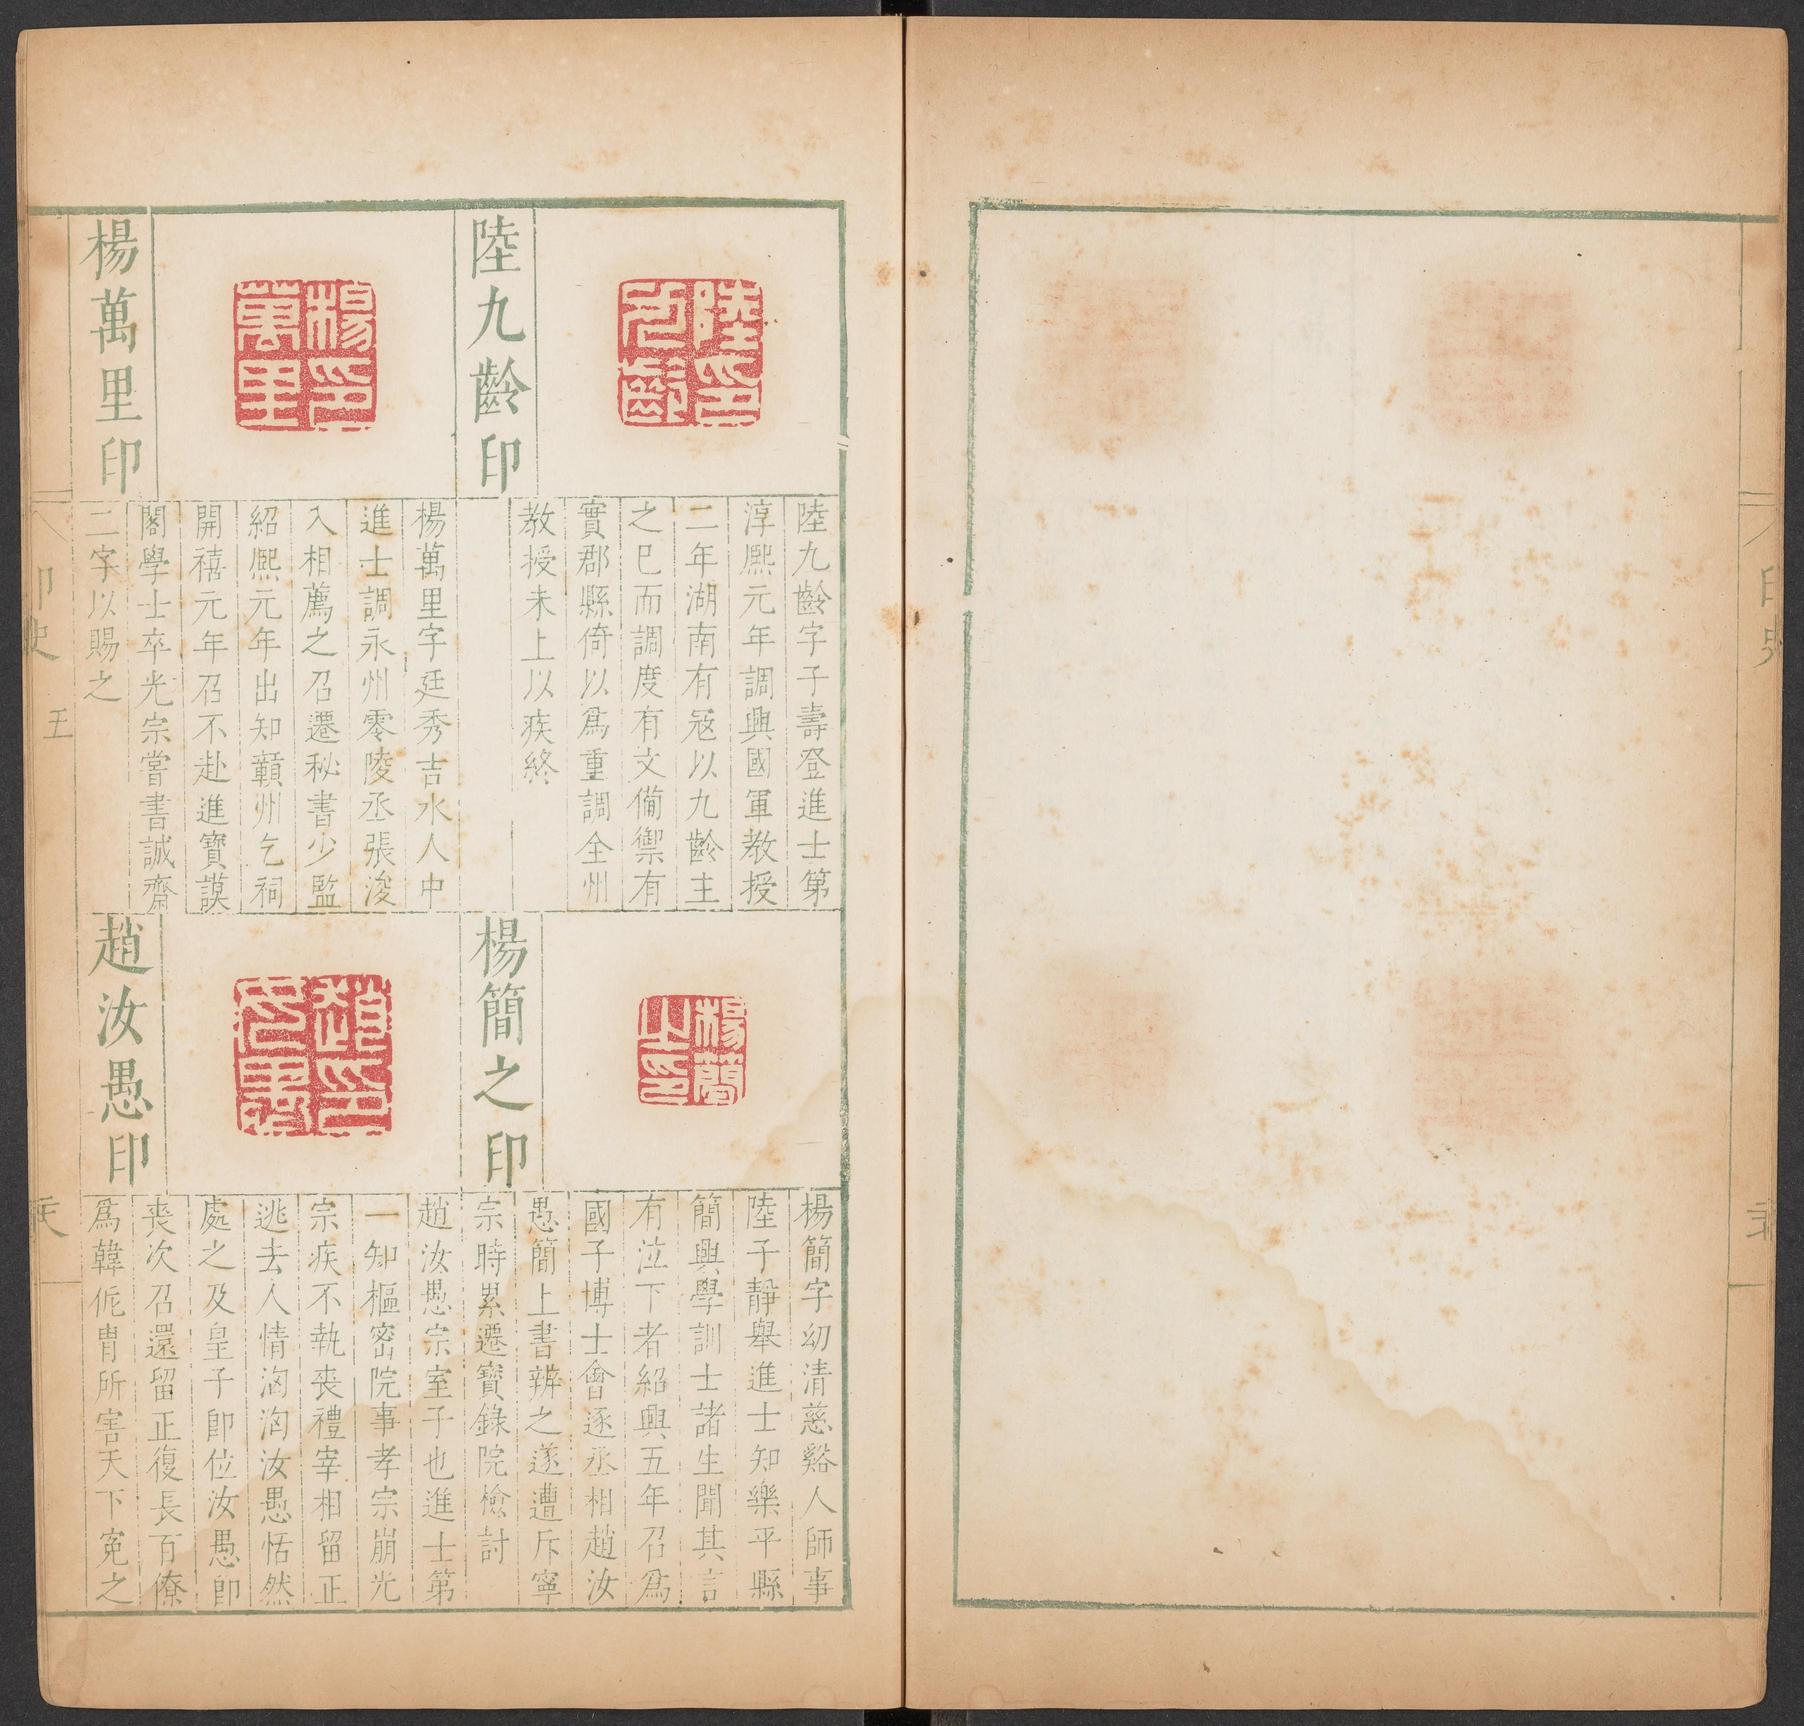 陸九齡印
陸九齡字子壽登進士第
淳熙元年調興國軍教授
二年湖南有寇以九齡主
之已而調度有文備禦有
實郡縣倚以爲重調全州
教授未上以疾終
楊萬里印
楊萬里字廷秀吉水人中
進士調永州零陵丞張浚
入相薦之召遷秘書少監
紹熙元年出知贑州乞祠
開禧元年召不赴進寶謨
閣學士卒光宗嘗書誠齋
二字以賜之
楊簡之印
楊簡字幼清慈谿人師事
陸子靜舉進士知樂平縣
簡興學訓士諸生聞其言
有泣下者紹興五年召爲
國子博士會逐丞相趙汝
愚簡上書辨之遂遭斥寧
宗時累遷寶錄院檢討
趙汝愚印
趙汝愚宗室子也進士第
一知樞密院事孝宗崩光
宗疾不執喪禮宰相留正
逃去人情洶洶汝愚恬然
處之及皇子卽位汝愚卽
喪次召還留正復長百僚
爲韓侂胄所害天下寃之
印史
五